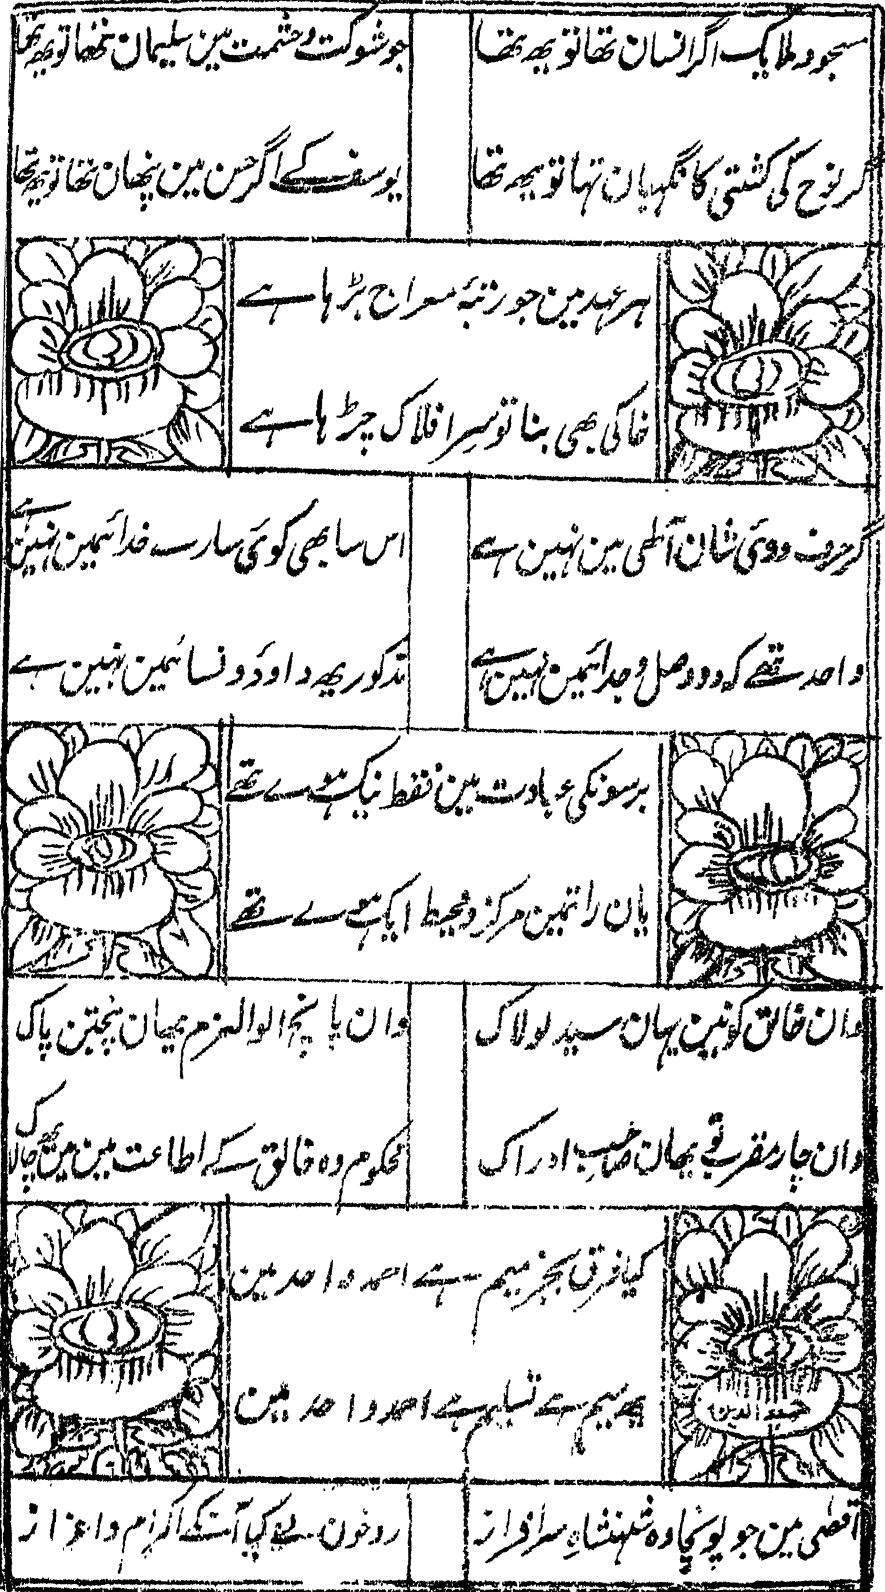 مسجود ملایک اگر انسان تھا تو یھ تھا
جو شوکت و حشمت مین سلیمان تھا تو یھ تھا
گر نوح کی کشتی کا نگہبان تہا تو یھ تھا
یوسف کے اگر حسن مین پنھان تھا تو یھ تھا
ہر عہد مین جو رتبۂ معراج بڑہا ہے
خاکی بھی بنا تو سر افلاک چڑہا ہے
گر حرف دوئی شان آلٰھی مین نہین ہے
اس سا بھی کوئی سارے خدائیمین نہین ہے
واحد تھے کہ دو وصل و جدائیمین نہین ہے
مذکور یھ داود و نسائیمین نہین ہے
برسونکی عبادت مین فقط نیک ہوے تھے
یان راتمین مرکز و محیط ایک ہوے تھے
وان خالق کونین یہان سید لولاک
وان پانچ الوالعزم یھان پنجتن پاک
وان چار مقرب تھے یھان صاحب ادراک
محکوم وہ خالق کے اطاعت مین یھ چالاک
کیا فرق بجز میم ہے احمد و احد مین
یھ میم ہے تسلیم ہے احمد و احد مین
اقصٰی مین جو پونچا وہ شہنشاہ سرافراز
روحون نے کیا آنکے اکرام و اعزاز